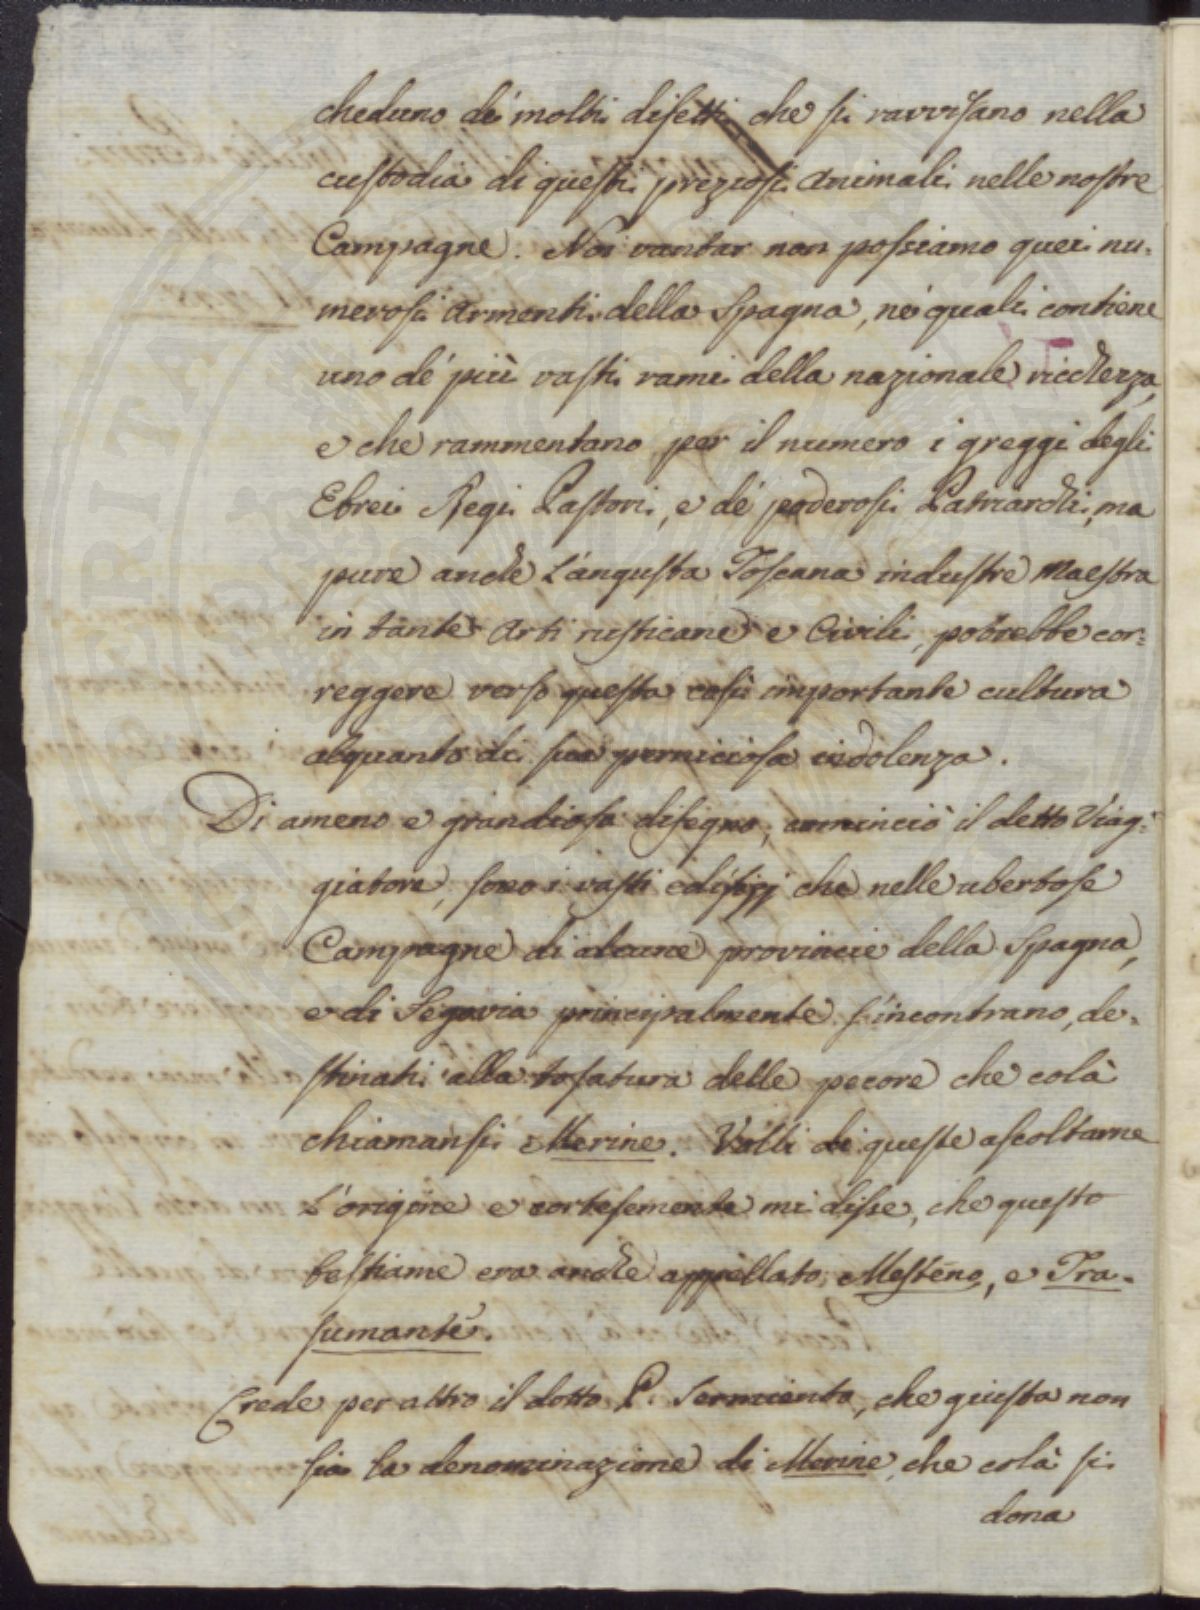 cheduno de' molti difetti che si ravvisano nella
custodia di questi preziosi animali nelle nostre
Campagne. Noi vantar non possiamo quei nu-
merosi Armenti della Spagna, né quali contiene
uno de' più vasti rami della nazionale ricchezza,
e che rammentano per il numero i greggi degli
Ebrei Regi Pastori, e de' poderosi Patriarchi, ma
pure anche l'angusta Toscana industre Maestra
in tante Arti rusticane e Civili, potrebbe cor-
reggere verso questa così importante cultura
alquanto di sua perniciosa indolenza.
Di ameno e grandioso disegno, cominciò il detto Viag-
giatore, sono i vasti edifizj che nelle ubertose
Campagne di alcune provincie della Spagna,
e di Segovia principalmente s'incontrano, de-
stinati alla tosatura delle pecore che colà
chiamansi Merine. Volli di queste ascoltarne
l'origine e cortesemente mi disse, che questo
bestiame era anche appellato Mesteño, e Tra-
sumante.
Crede per altro il dotto P. Sarmiento, che giusta non
sia la denominazione di Merine che colà si
dona